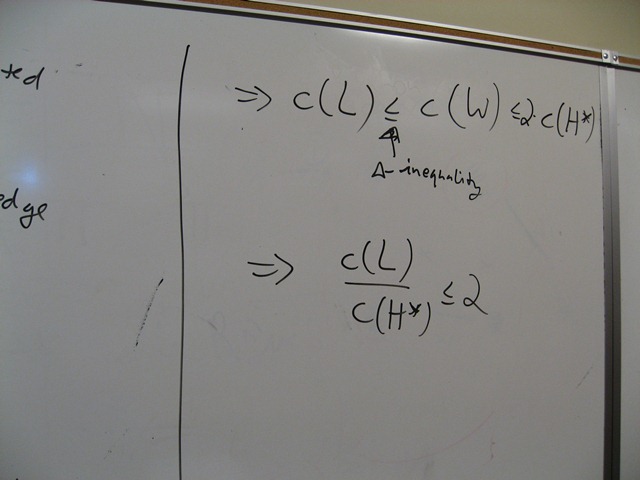 ted
edge
=> c(L) ≤ c(W) ≤ 2·c(H*)
Δ-inequality
=> c(L)
c(H*) ≤ 2